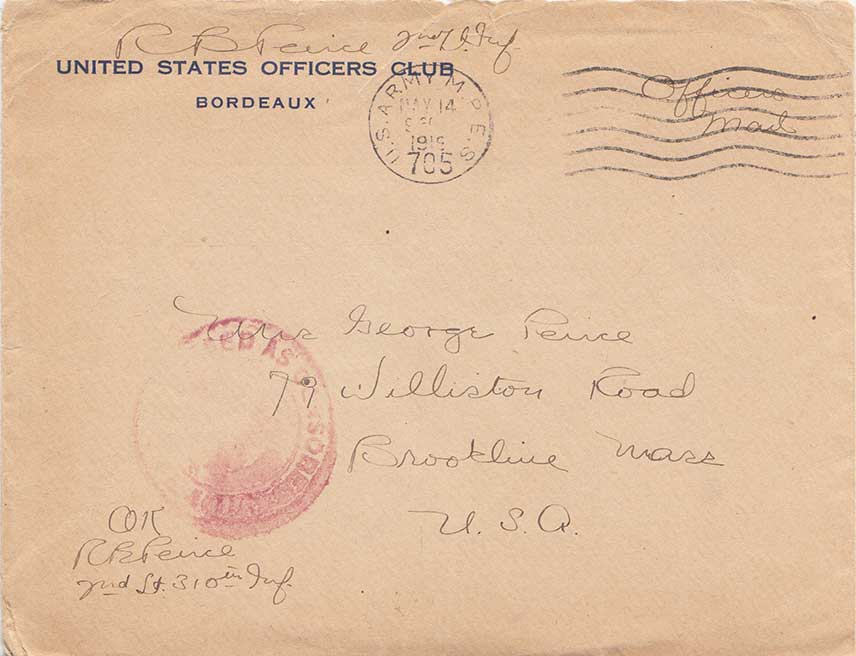 R B Peirce 2nd Lt. Inf.
UNITED STATES OFFICERS CLUB
BORDEAUX
U.S. ARMY M.P.E.S.
MAY 14
1919
705
Officers
Mail
George Peirce
79 Williston Road
Brookline Mass
U. S. A.
AS CENSORED
OK
R B Peirce
2nd Lt. 310th Inf.